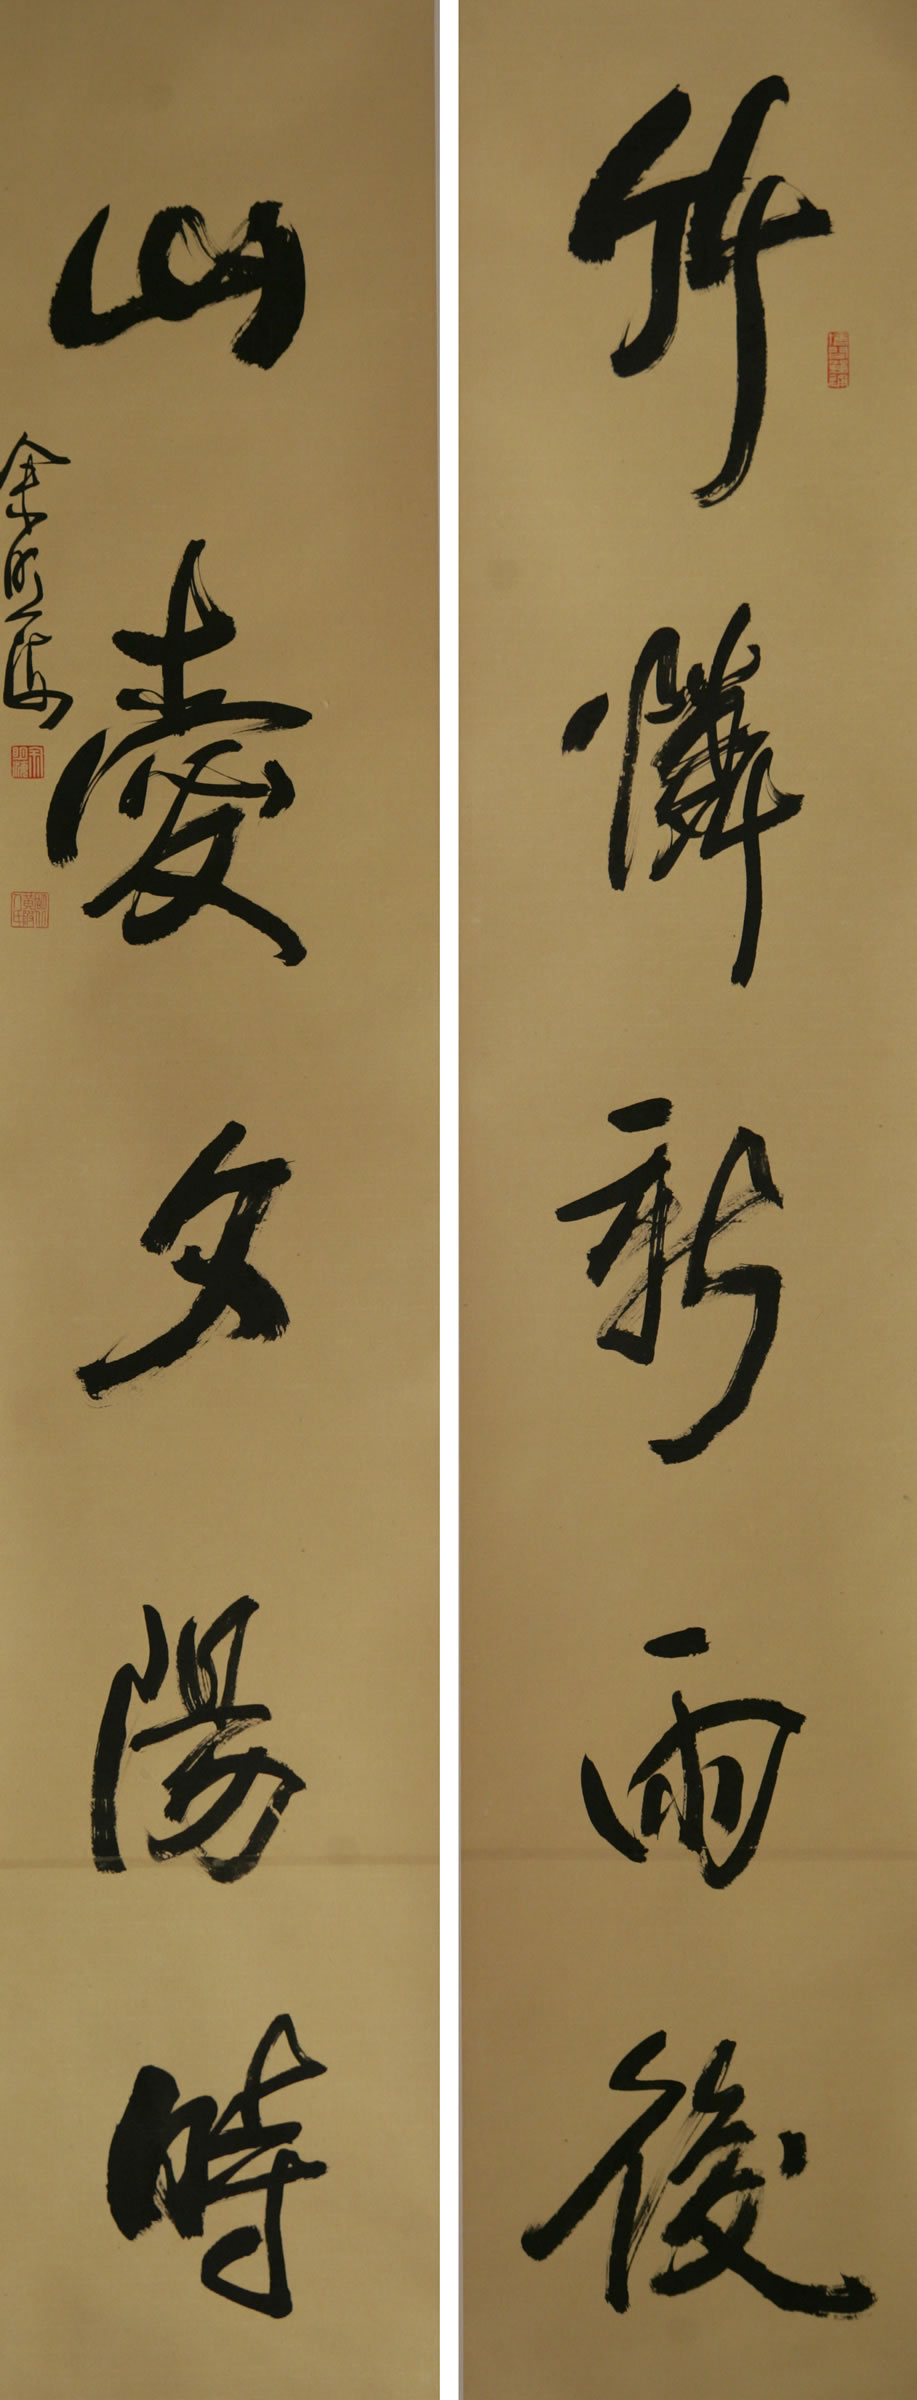 竹憐新雨後
山愛夕陽時
余明海